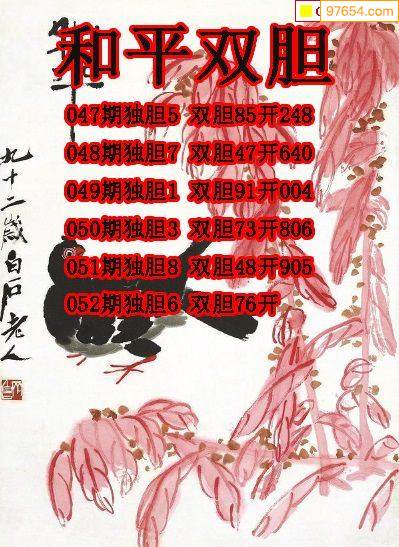 97654.com
和平双胆
047期独胆5 双胆85开248
048期独胆7 双胆47开640
049期独胆1 双胆91开004
050期独胆3 双胆73开806
051期独胆8 双胆48开905
052期独胆6 双胆76开
九十二岁白石老人